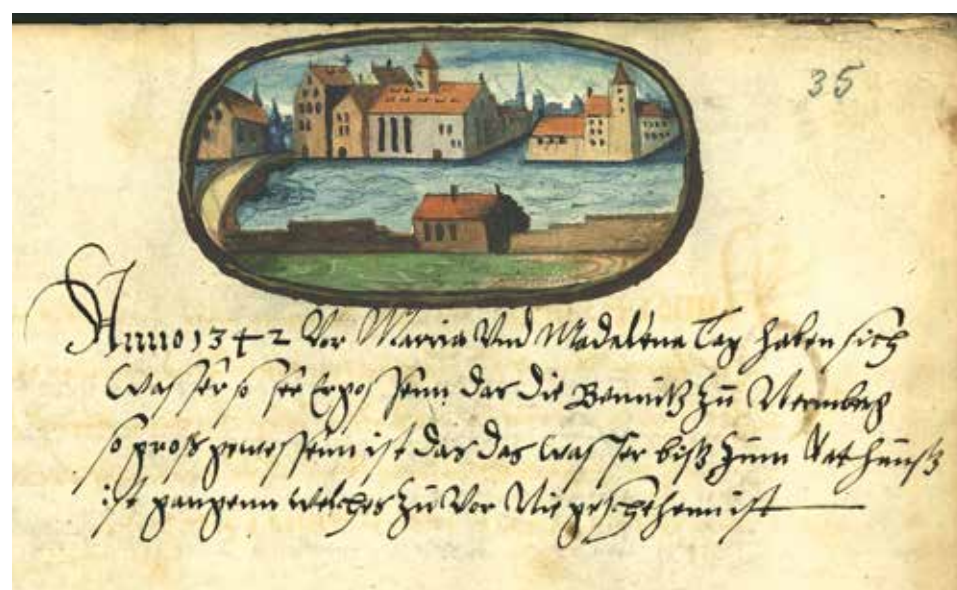 35
Anno 1342 Vor Maria Vnd Madalena Tag haben sich
Wasser so ser Ergossenn das die Bengnitz zu Nurmberg
so groß gewessenn ist das das wasser biß zum Rathauß
ist gangenn welches zu vor Nie geschehenn ist